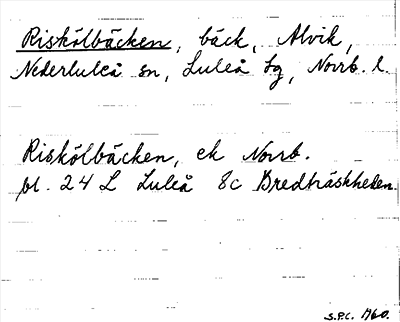 Riskölbäcken, bäck, Alvik,
Nederluleå sn, Luleå tg, Norrb. l.
Riskölbäcken, ek Norrb.
bl. 24 L Luleå 8c Bredträskheden.
S.P.C. 1960.